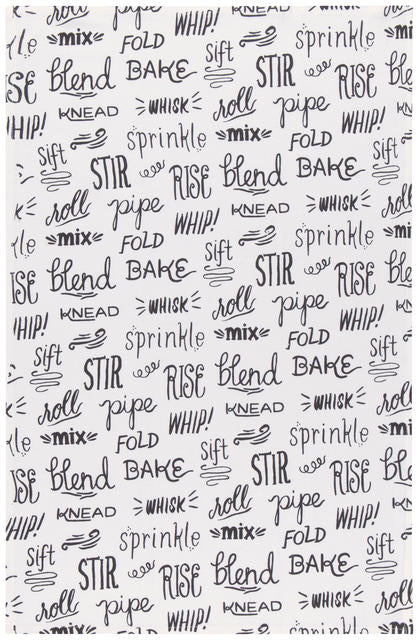 WHIP!
kle mix FOLD sift sprinkle mi
ISE blend BAKE STIR RISE ble
HIP! KNEAD WHISK roll pipe WHIP! KN
sift sprinkle mix FOLD sift
STIR RISE blend BAKE
K roll pipe WHIP! KNEAD WHISK roll
kle mix FOLD sift sprinkle mi
ISE blend BAKE STIR RISE ble
HIP! KNEAD WHISK roll pipe WHIP!
sift sprinkle mix FOLD sift
STIR RISE blend BAKE
K roll pipe WHIP! KNEAD WHISK roll
kle mix FOLD sift sprinkle mi
ISE blend BAKE STIR RISE ble
HIP! KNEAD WHISK roll pipe WHIP!
sift sprinkle mix FOLD sift
STIR RISE blend BAKE
roll pipe WHIP! KNEAD WHISK roll